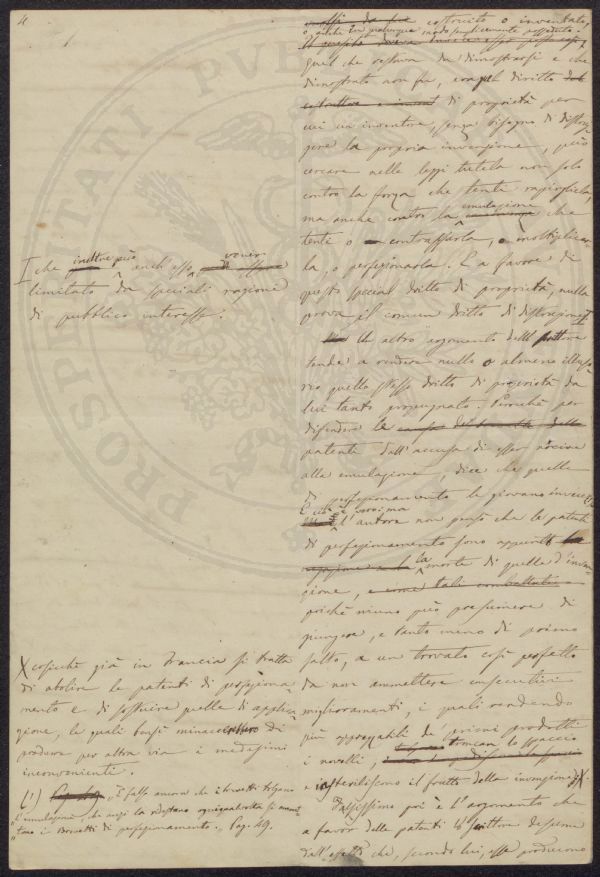 4
costruito o inventato,
o gelete in qualunque modo semplicemente posseduto.
quel che restava da dimostrarsi e che
dimostrato non fu, era quel diritto
di proprietà per
cui un inventore, senza bisogno di
la propria invenzione, può
cercare nelle leggi tutela non solo
contro la forza che tenti rapirgliela,
ma anche contro la emulazione che
tenti o contraffarla, o moltiplicar-
la, o perfezionarla. E a favore di
questo special dritto di proprietà, nulla
prova il comun dritto di
Un altro argomento dell'
tende a rendere nullo o almeno illuso-
rio quello stesso dritto di proprietà da
lui tanto propugnato. Perocchè per
difendere le
patenti dall'accusa di esser nocive
alla emulazione, dice che quelle
di perfezionamento le giovano invece (1)
E ciò è verissimo
l'autore non pensò che le patenti
di perfezionamento sono appunto
la morte di quelle d'inven-
zione, e come tali
poichè niuno può presumere di
giungere, e tanto meno di primo
salto, a un trovato così perfetto
da non ammettere susseguenti
miglioramenti, i quali rendendo
più apprezzabili de' primi prodotti
i novelli, troncan lo spaccio
e isteriliscono il frutto della invenzione X.
Falsissimo poi è l'argomento che
a favor delle patenti lo scrittore desume
dall'effetto che, secondo lui, esse producono
I che inoltre può anch'esso venir
limitato da speciali ragioni
di pubblico interesse.
X cosicchè già in Francia si tratta
di abolire le patenti di perfeziona-
mento e di sostituire quelle di applica-
zione, le quali bensì minacciano di
produrre per altra via i medesimi
inconvenienti.
(1) "È falso ancora che i brevetti tolgano
"l'emulazione, che anzi la ridestano ogniqualvolta si
"i Brevetti di perfezionamento", Pag. 49.
PROSPERITATI PUBLICAE